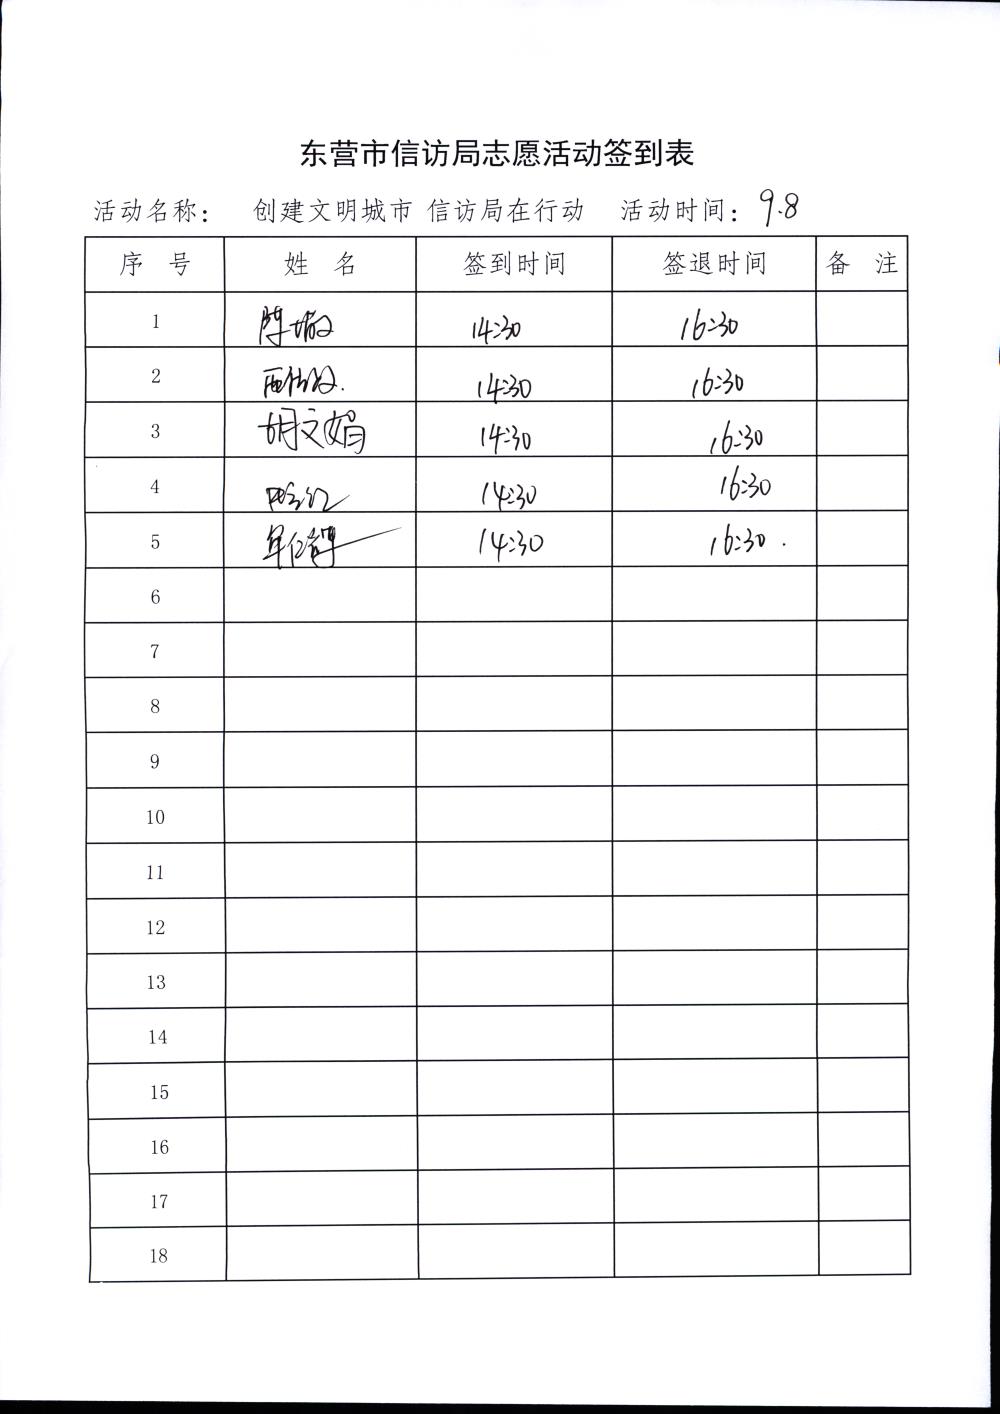 东营市信访局志愿活动签到表
活动名称： 创建文明城市 信访局在行动 活动时间：9.8
序 号 姓 名 签到时间 签退时间 备 注
1 14:30 16:30
2 14:30 16:30
3 胡文娟 14:30 16:30
4 14:30 16:30
5 14:30 16:30
6
7
8
9
10
11
12
13
14
15
16
17
18